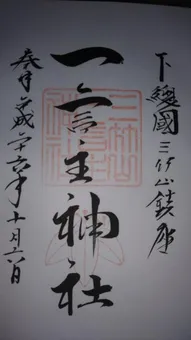 下總國三竹山鎮座
一言主神社
奉拝平成二十六年十月二六日